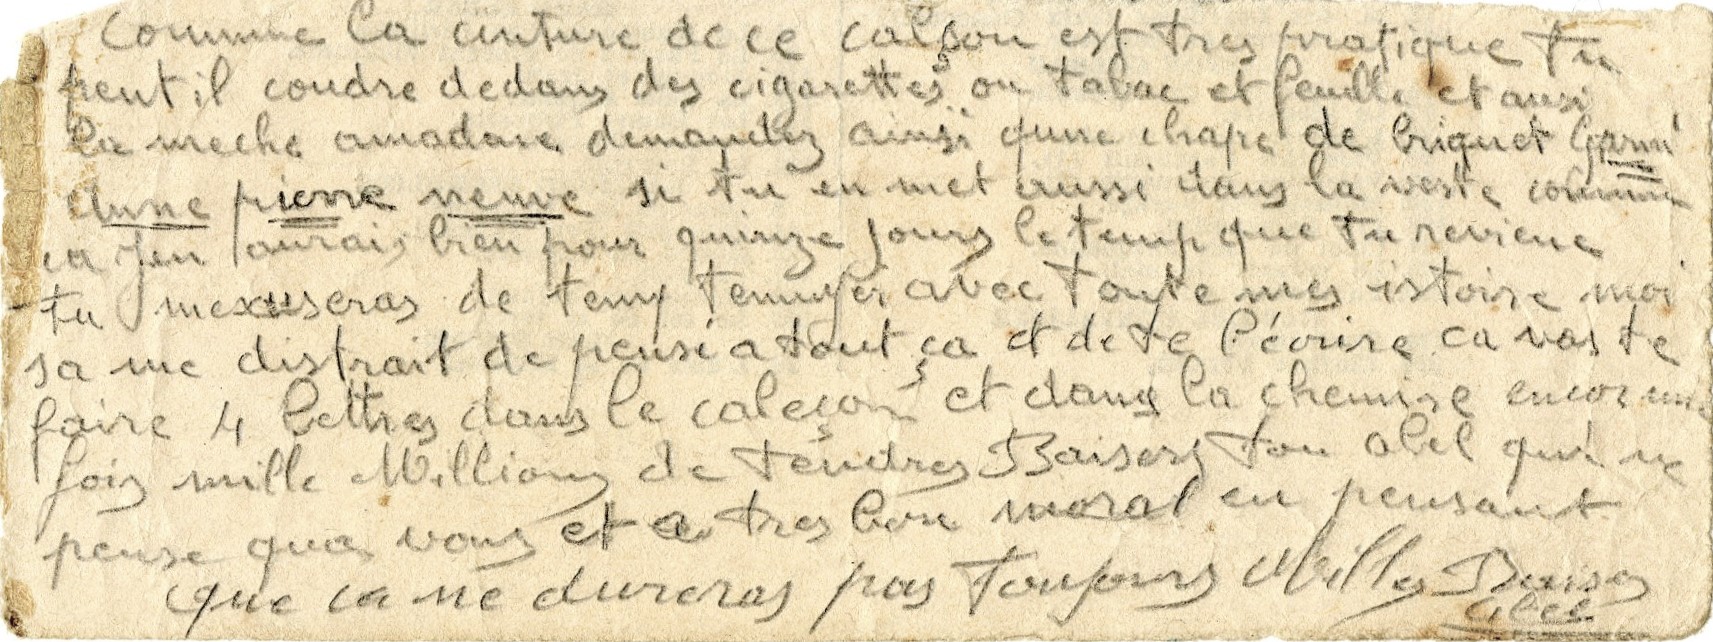 Comme la cinture de ce calçon est tres pratique tu
peut il coudre dedans des cigarettes ou tabac et feuille et ausi
la meche amadou demandez ainsi qune chape de briquet Garni
dune pierre neuve si tu en met aussi dans la veste comme
ca jen aurais bien pour quinze jours le temp que tu reviene
tu mexuseras de temp tennuyer avec toute mes istoire moi
sa me distrait de pensé a tout ça et de te l'écrire ca vas te
faire 4 lettres dans le caleçon et dans la chemise encor une
fois mille Millions de tendres Baisers ton abel qui ne
pense qua vous et a tres bon moral en pensant
que ca ne dureras pas toujours Milles Baises
abel